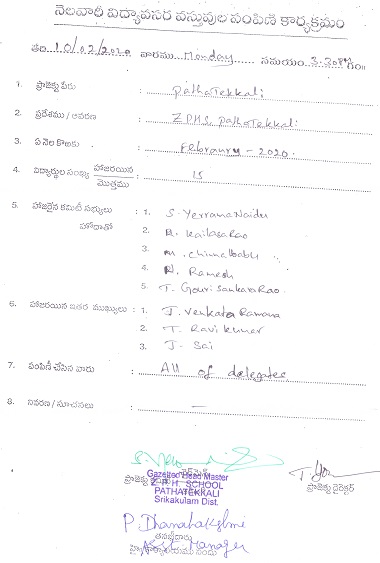 నెలవారీ విద్యావసర వస్తువుల పంపిణి కార్యక్రమం
తేది 10/02/2020 వారము Monday సమయం 3-30
1. ప్రాజెక్టు పేరు : PathaTekkali
2. ప్రదేశము / ఆవరణ : ZPHS, PathaTekkali
3. ఏ నెల కొఱకు : February - 2020.
4. విద్యార్థుల సంఖ్య హాజరయిన / మొత్తము : 15
5. హాజరైన కమిటీ సభ్యులు : 1. S. Yerrama Naidu
హోదాతో 2. Kailasa Rao
3. M. Chinnababu
4. N. Ramesh
5. T. Gouri Sankara Rao.
6. హాజరయిన ఇతర ముఖ్యులు : 1. J. Venkata Ramana
2. T. Ravi kumar
3. J. Sai
7. పంపిణీ చేసిన వారు : All of delegates
8. వివరణ / సూచనలు : —
Gazetted Head Master
Z. P. H. SCHOOL
PATHATEKKALI
Srikakulam Dist.
ప్రాజెక్టు డైరెక్టర్
P. Dhanalakshmi
Manager